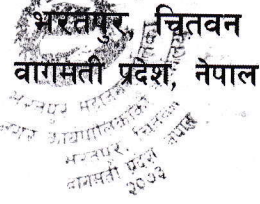 भरतपुर, चितवन
वागमती प्रदेश, नेपाल
भरतपुर महानगर
नगर कार्यपालिकाको
भरतपुर, चितवन
वागमती प्रदेश नेपाल
२०७३